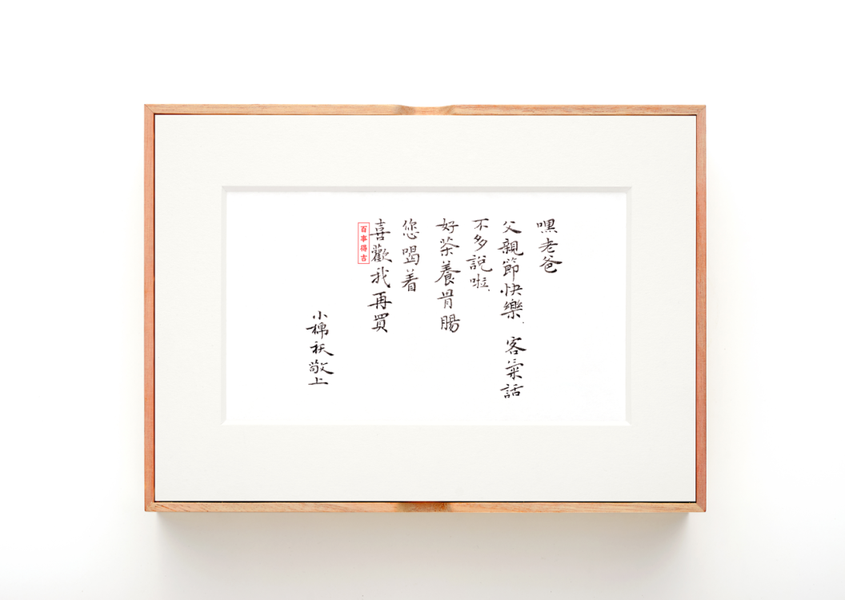 嘿老爸
父親節快樂、客氣話
不多說啦、
好茶養胃腸
您喝着
喜歡我再買
百事得吉
小棉袄敬上